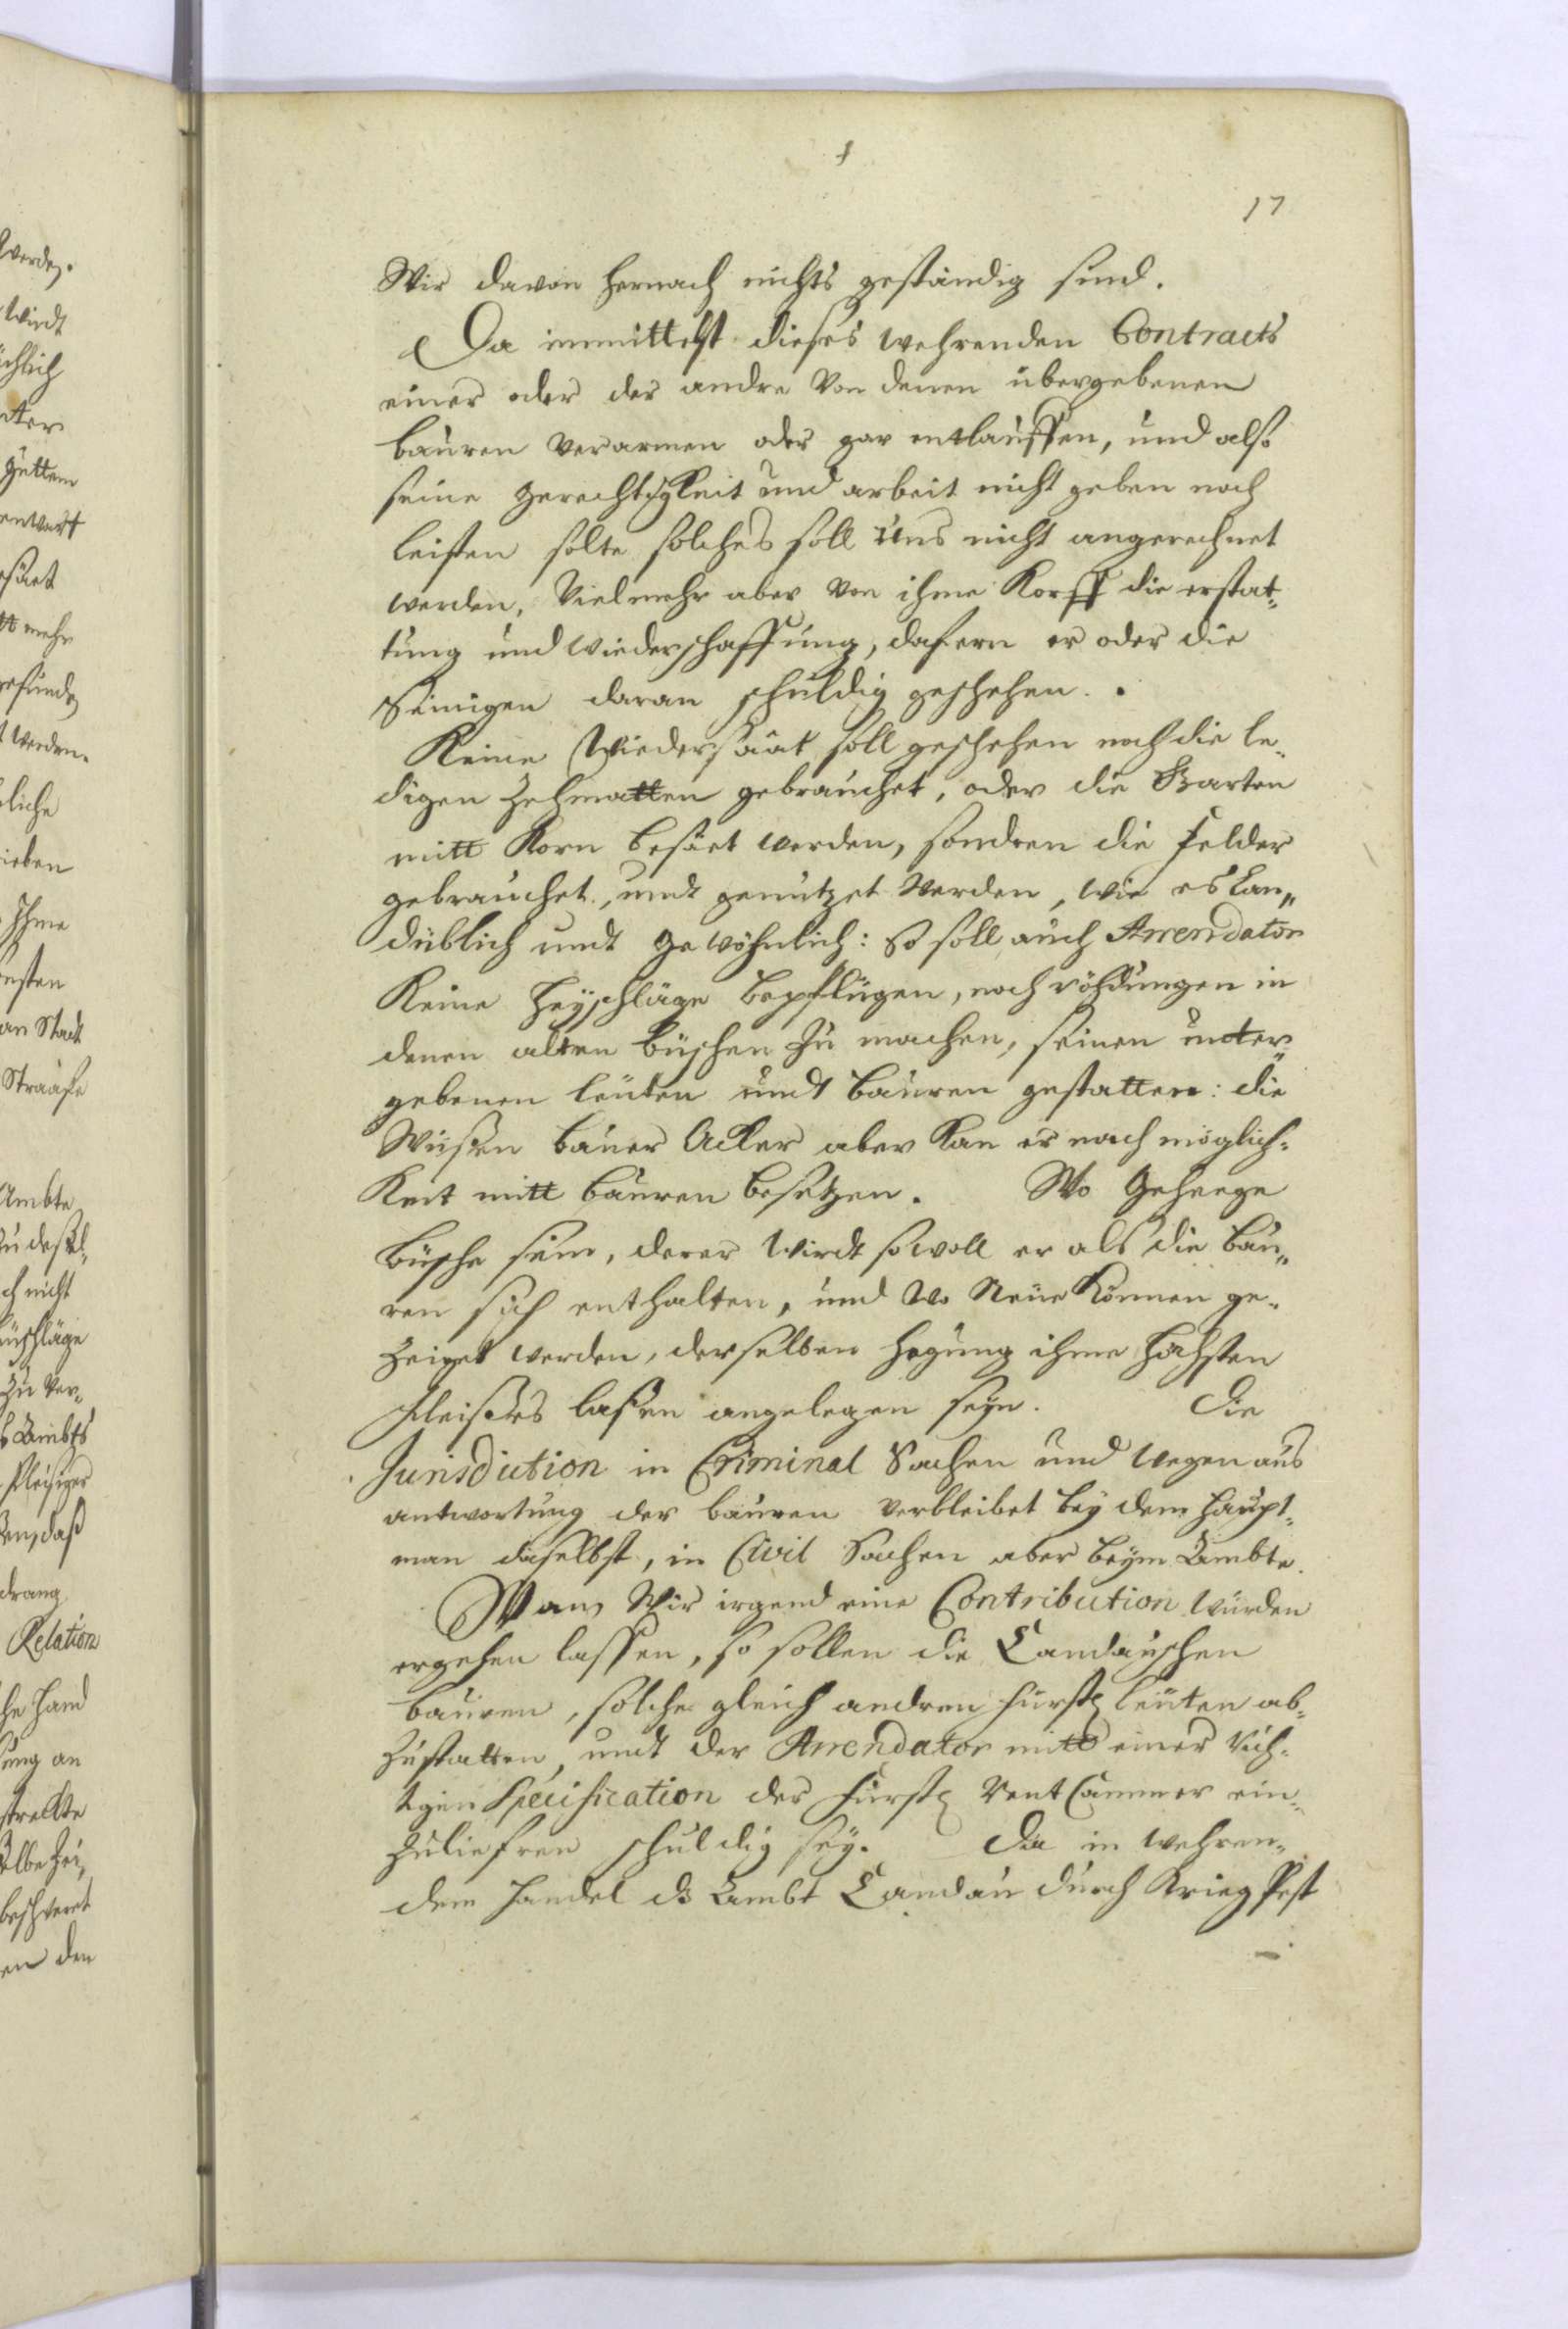 17
Wir davon hernach nichts geständig sind.
Da immittelst dieses wehrenden Contracts
einer oder der andre von denen übergebenen
bauren verarmen oder gar entlauffen, und also
seine gerechtigkeit und arbeit nicht geben noch
leisten solte, solches soll Uns nicht angerechnet
werden, Vielmehr aber von ihme Korff die erstat¬
tung und wiederschaffung, dafern er oder die
Seinigen daran schuldig geschehen.
Keine Wiedersaat soll geschehen noch die le¬
digen gebrauchet, oder die Garten
mitt Korn besäet werden, sondren die felder
gebrauchet, undt genutzet Werden, wie es Lan„
düblich undt gewöhnlich: so soll auch Arrendator
Keine Heyschläge bepflügen, noch röhdungen in
denen alten büschen zu machen, seinen unter¬
gebenen leuten undt bauren gestatten: die
Wüsten bauer Acker aber Kan er nach möglich¬
Keit mitt bauren besetzen. Wo Geheege
büsche sein, derer Wirdt sowoll er als die bau„
ren sich enthalten, und Wo Neue Können ge¬
zeiget werden, derselben hegung ihme höchsten
fleißes laßen angelegen seyn. Die
Jurisdiction in Criminal Sachen und wegen aus
antwortung der bauren verbleibet bey dem Haupt¬
man daselbst, in Civil Sachen aber beym Ambte.
Wan Wir irgend eine Contribution würden
ergehen lassen, so sollen die Candauschen
bauren, solche gleich andren fürstl leuten ab¬
zustatten, undt der Arrendator mitt einer rich¬
tigen Specification der fürstl Rent Cammer ein¬
zuliefren schuldig sey. Da in wehren¬
dem Handel dß Ambt Candau durch Krieg Pest
werden.
wirdt
nicht
zu Ver¬
daß
Relation
an
den